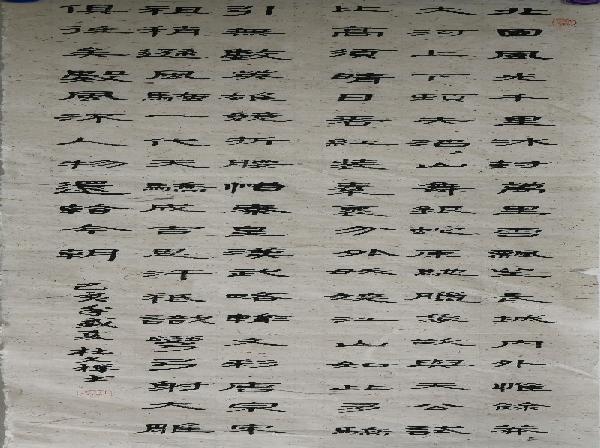 北国風光千里冰封萬里雪飄望長城内外惟餘莽
大河上下頓失滔山舞銀蛇原馳臘象欲與天公試
比高須晴日看紅裝素裹分外妖嬈江山如此多嬌
引無數英雄競折腰惜秦皇漢武略輸文彩唐宗宋
祖稍遜風騷一代天驕成吉思汗祇識彎弓射大雕
俱往矣數風流人物還看今朝
己亥